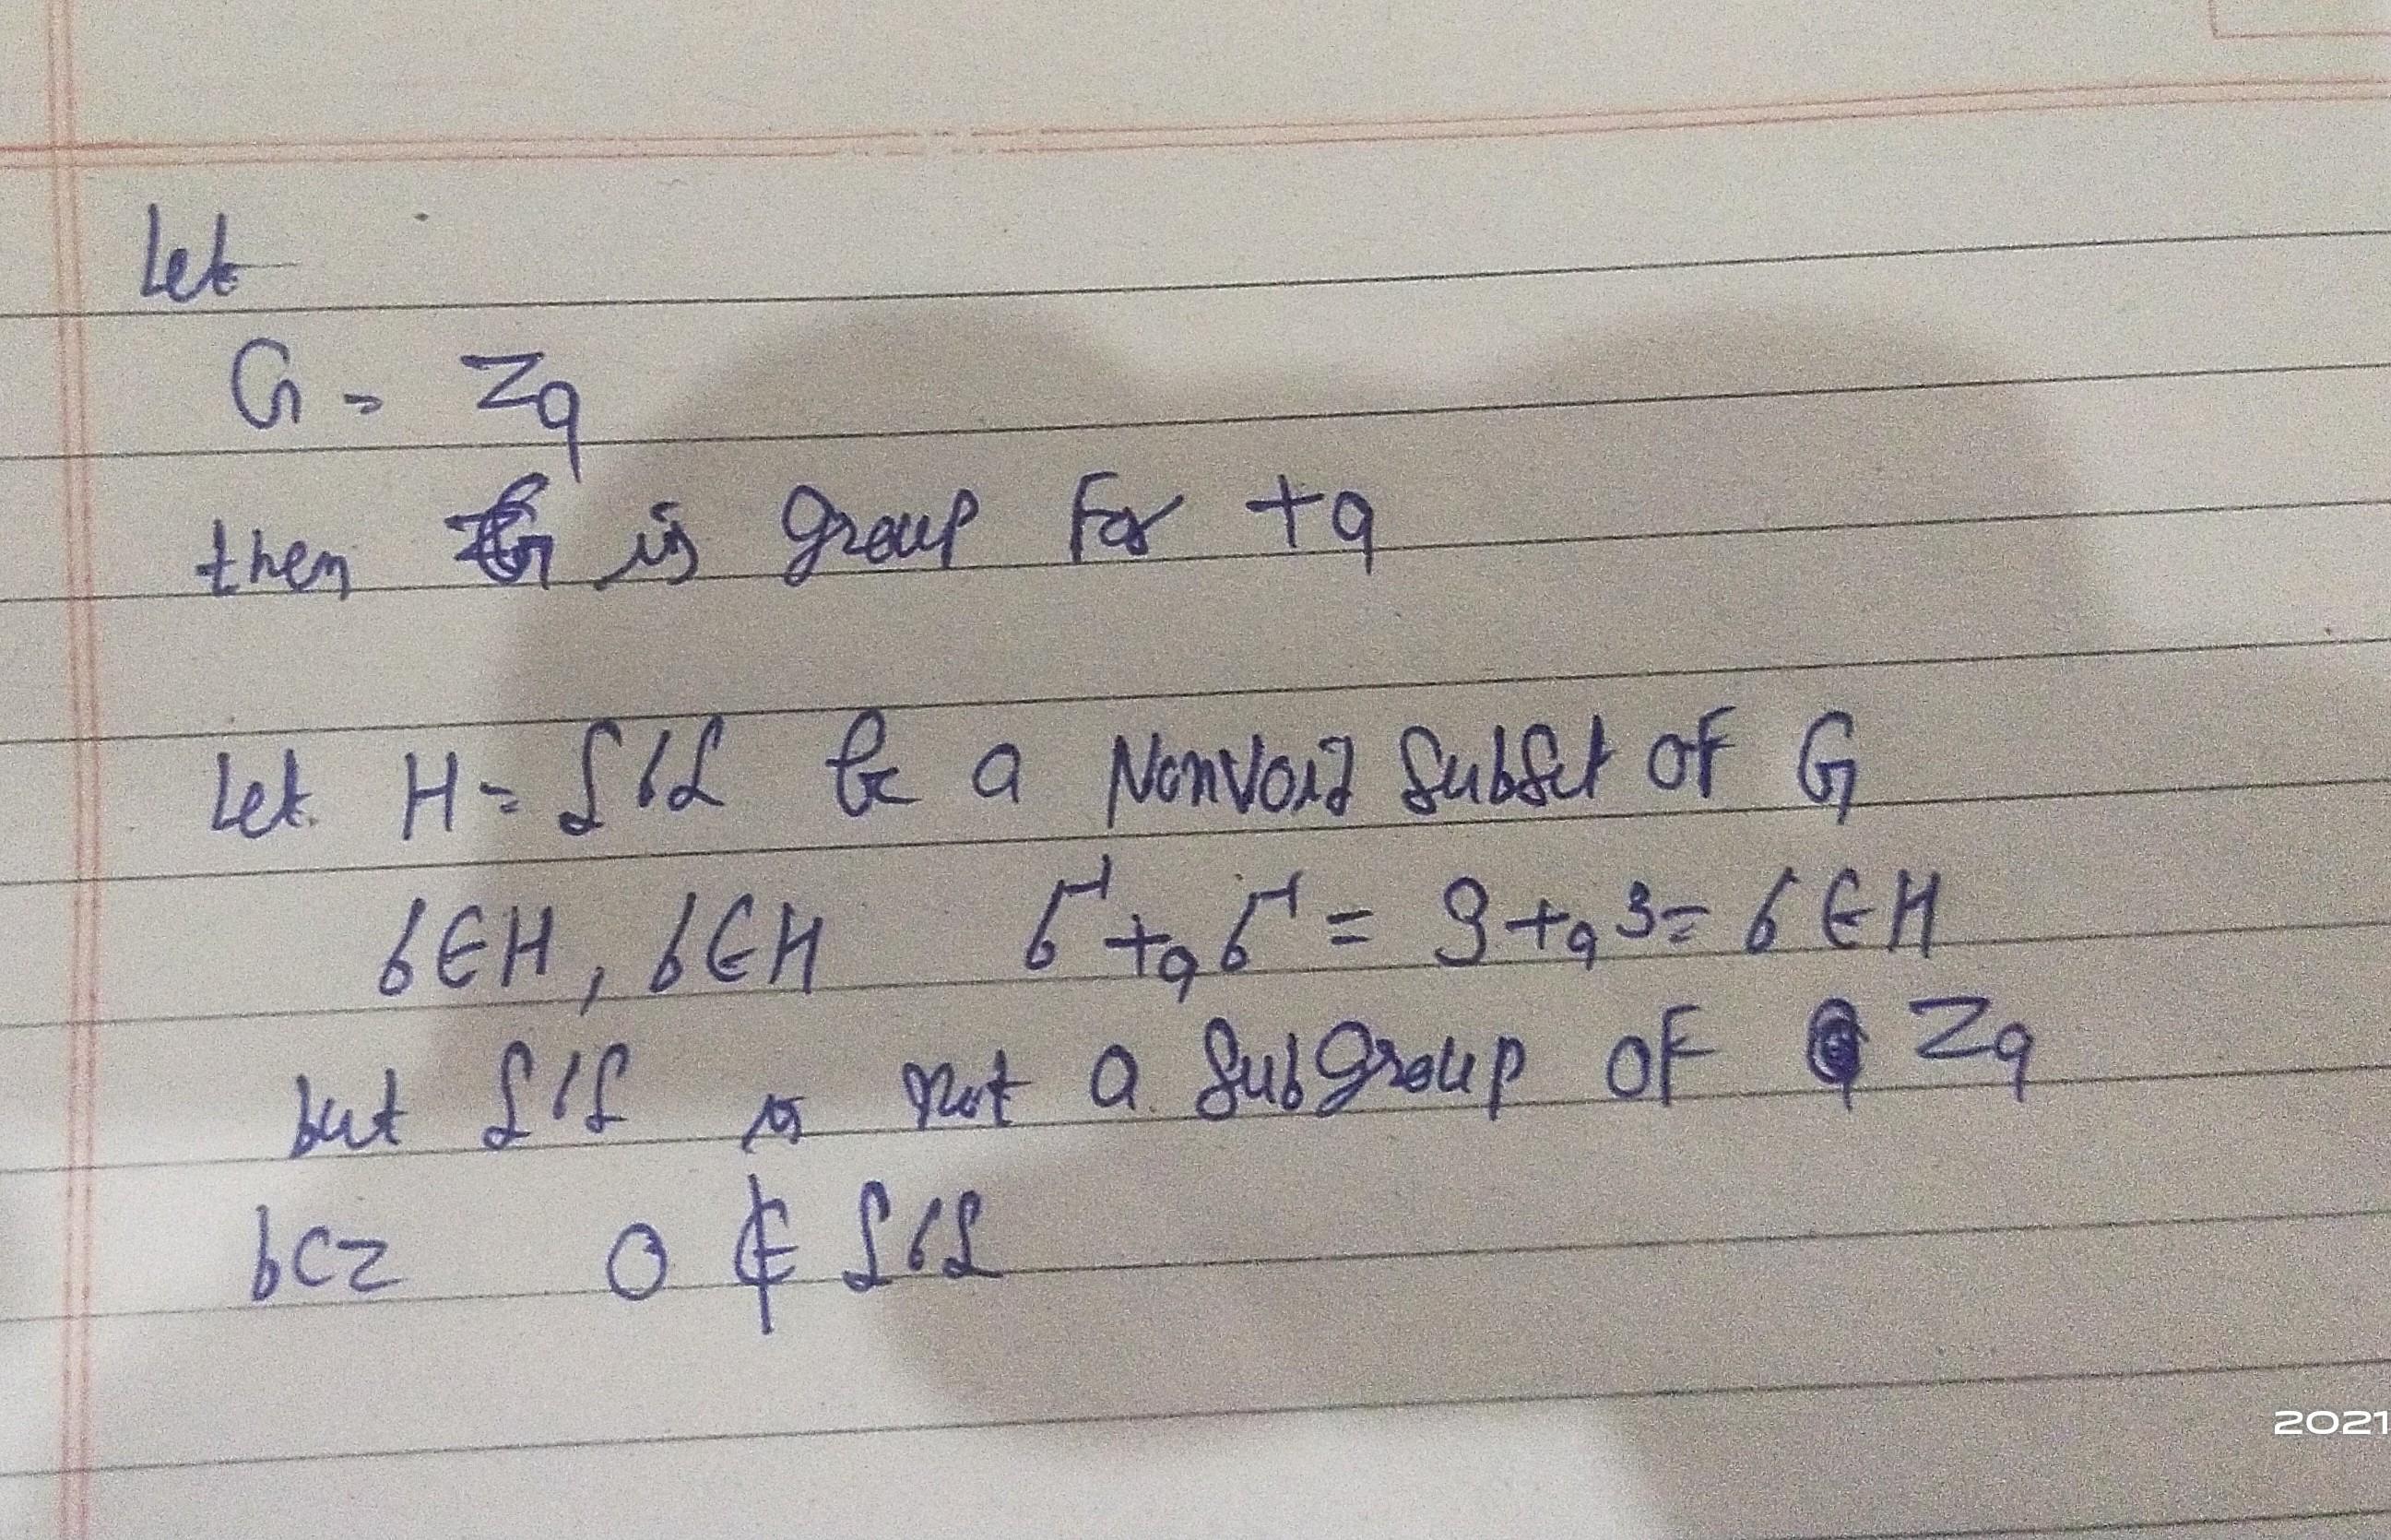 Let
G = Z9
then G is group For +9
Let H = {6} be a Nonvoid Subset of G
6 ∈ H, 6 ∈ H 6⁻¹ +9 6⁻¹ = 3 +9 3 = 6 ∈ H
but {6} is not a SubGroup OF Z9
bcz 0 ∉ {6}
2021